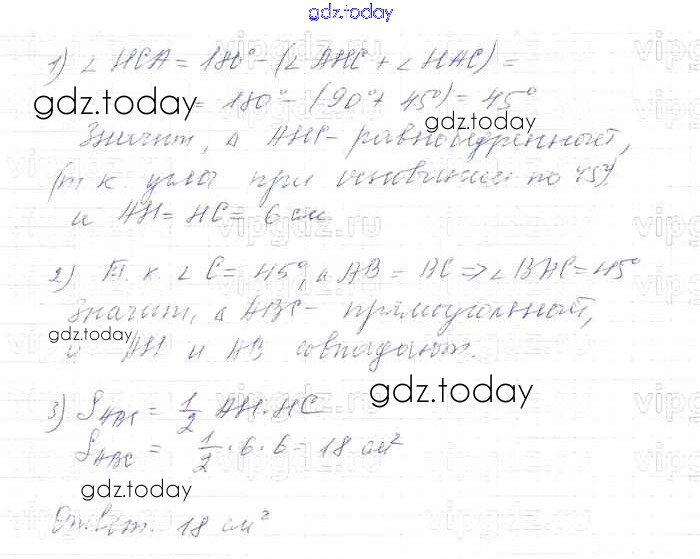 gdz.today
1) ∠ HCA = 180° - (∠ AHC + ∠ HAC) =
gdz.today = 180° - (90° + 45°) = 45°
gdz.today
Значит, Δ AHC - равнобедренный,
(т.к. углы при основании по 45°)
и AH = HC = 6 см
2) Т.к. ∠ C = 45°, а AB = BC => ∠ BAC = 45°
Значит, Δ ABC - прямоугольный,
gdz.today
и AH и AB совпадают.
gdz.today
3) S ABC = 1/2 AH · HC
S ABC = 1/2 · 6 · 6 = 18 см²
gdz.today
Ответ: 18 см²